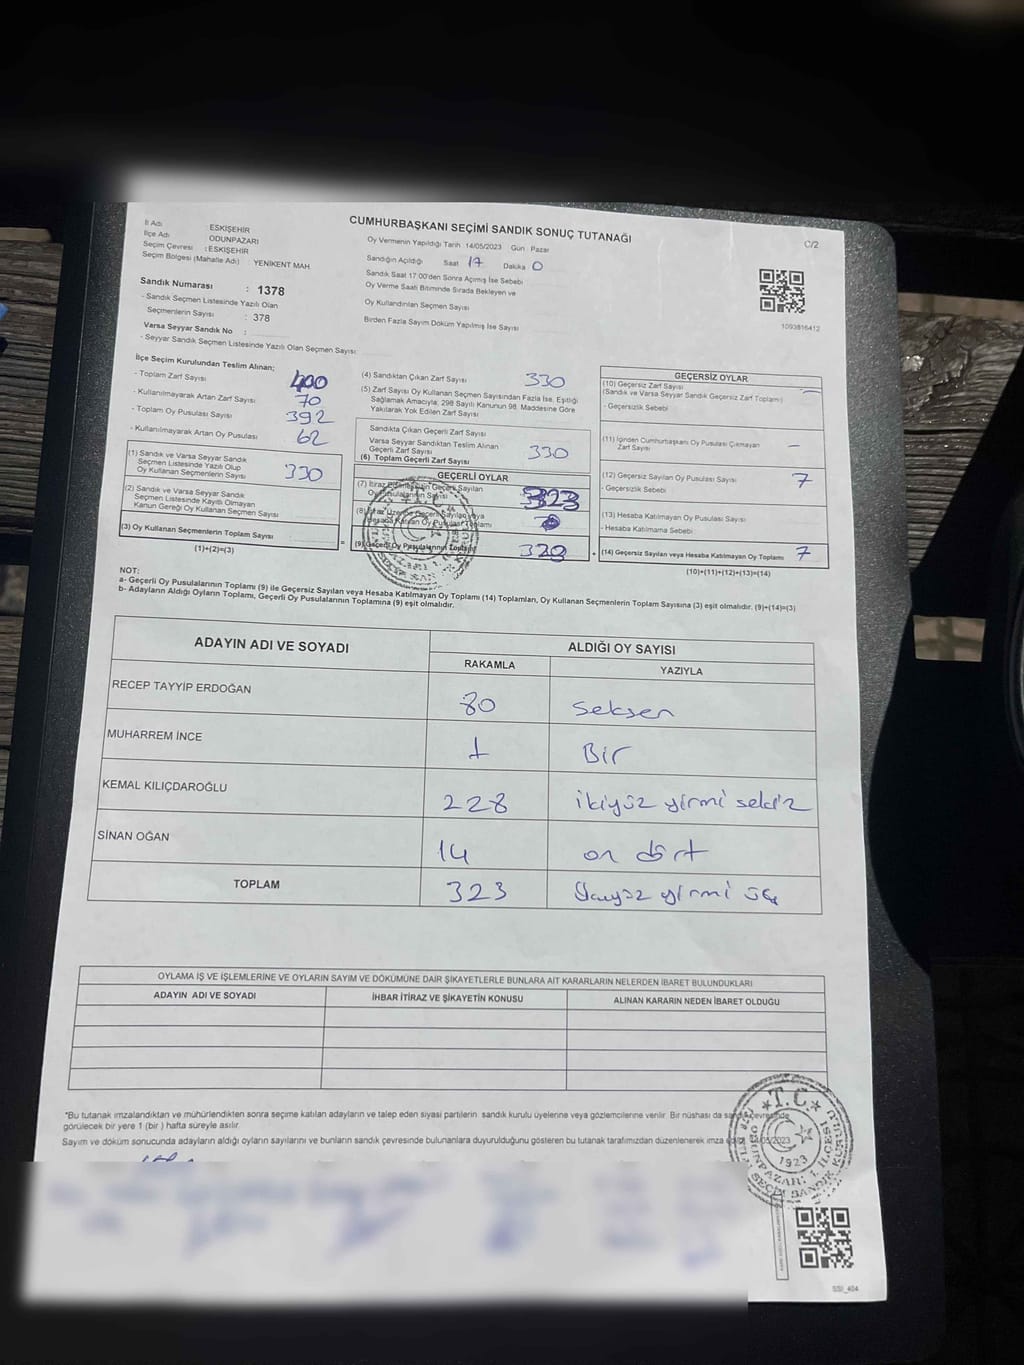 CUMHURBAŞKANI SEÇİMİ SANDIK SONUÇ TUTANAĞI
C/2
İl Adı : ESKİŞEHİR
İlçe Adı : ODUNPAZARI
Seçim Çevresi : ESKİŞEHİR
Seçim Bölgesi (Mahalle Adı) : YENİKENT MAH.
Sandık Numarası : 1378
- Sandık Seçmen Listesinde Yazılı Olan
Seçmenlerin Sayısı : 378
Varsa Seyyar Sandık No :
- Seyyar Sandık Seçmen Listesinde Yazılı Olan Seçmen Sayısı:
Oy Vermenin Yapıldığı Tarih 14/05/2023 Gün : Pazar
Sandığın Açıldığı Saat 17 Dakika 0
Sandık Saat 17:00'den Sonra Açılmış İse Sebebi
Oy Verme Saati Bitiminde Sırada Bekleyen ve
Oy Kullandırılan Seçmen Sayısı
Birden Fazla Sayım Döküm Yapılmış İse Sayısı
1093816412
İlçe Seçim Kurulundan Teslim Alınan;
- Toplam Zarf Sayısı 400
- Kullanılmayarak Artan Zarf Sayısı 70
- Toplam Oy Pusulası Sayısı 392
- Kullanılmayarak Artan Oy Pusulası 62
(1) Sandık ve Varsa Seyyar Sandık
Seçmen Listesinde Yazılı Olup
Oy Kullanan Seçmenlerin Sayısı 330
(2) Sandık ve Varsa Seyyar Sandık
Seçmen Listesinde Kayıtlı Olmayan
Kanun Gereği Oy Kullanan Seçmen Sayısı
(3) Oy Kullanan Seçmenlerin Toplam Sayısı =
(1)+(2)=(3)
(4) Sandıktan Çıkan Zarf Sayısı 330
(5) Zarf Sayısı Oy Kullanan Seçmen Sayısından Fazla İse, Eşitliği
Sağlamak Amacıyla; 298 Sayılı Kanunun 98. Maddesine Göre
Yakılarak Yok Edilen Zarf Sayısı
Sandıkta Çıkan Geçerli Zarf Sayısı
Varsa Seyyar Sandıktan Teslim Alınan
Geçerli Zarf Sayısı
(6) Toplam Geçerli Zarf Sayısı 330
GEÇERLİ OYLAR
(7) İtiraz Geçerli Sayılan
Oy Pusulalarının Sayısı 323
(8) İtiraz Üzerine Geçerli Sayılan veya
Hesaba Katılan Oy Pusulaları Toplamı
(9) Geçerli Oy Pusulalarının Toplamı +
GEÇERSİZ OYLAR
(10) Geçersiz Zarf Sayısı
(Sandık ve Varsa Seyyar Sandık Geçersiz Zarf Toplamı) -
- Geçersizlik Sebebi
(11) İçinden Cumhurbaşkanı Oy Pusulası Çıkmayan
Zarf Sayısı -
(12) Geçersiz Sayılan Oy Pusulası Sayısı 7
- Geçersizlik Sebebi
(13) Hesaba Katılmayan Oy Pusulası Sayısı
- Hesaba Katılmama Sebebi
(14) Geçersiz Sayılan veya Hesaba Katılmayan Oy Toplamı 7
(10)+(11)+(12)+(13)=(14)
NOT:
a- Geçerli Oy Pusulalarının Toplamı (9) ile Geçersiz Sayılan veya Hesaba Katılmayan Oy Toplamı (14) Toplamları, Oy Kullanan Seçmenlerin Toplam Sayısına (3) eşit olmalıdır. (9)+(14)=(3)
b- Adayların Aldığı Oyların Toplamı, Geçerli Oy Pusulalarının Toplamına (9) eşit olmalıdır.
ADAYIN ADI VE SOYADI ALDIĞI OY SAYISI
RAKAMLA YAZIYLA
RECEP TAYYİP ERDOĞAN 80 seksen
MUHARREM İNCE 1 Bir
KEMAL KILIÇDAROĞLU 228 ikiyüz yirmi sekiz
SİNAN OĞAN 14 on dört
TOPLAM 323 üçyüz yirmi üç
OYLAMA İŞ VE İŞLEMLERİNE VE OYLARIN SAYIM VE DÖKÜMÜNE DAİR ŞİKAYETLERLE BUNLARA AİT KARARLARIN NELERDEN İBARET BULUNDUKLARI
ADAYIN ADI VE SOYADI İHBAR İTİRAZ VE ŞİKAYETİN KONUSU ALINAN KARARIN NEDEN İBARET OLDUĞU
*Bu tutanak imzalandıktan ve mühürlendikten sonra seçime katılan adayların ve talep eden siyasi partilerin sandık kurulu üyelerine veya gözlemcilerine verilir. Bir nüshası da sandık çevresinde
görülecek bir yere 1 (bir) hafta süreyle asılır.
Sayım ve döküm sonucunda adayların aldığı oyların sayılarını ve bunların sandık çevresinde bulunanlara duyurulduğunu gösteren bu tutanak tarafımızdan düzenlenerek imza 14/05/2023
T.C.
1923
ODUNPAZARI 1. İLÇE
SEÇİM SANDIK KURULU
SSI_404